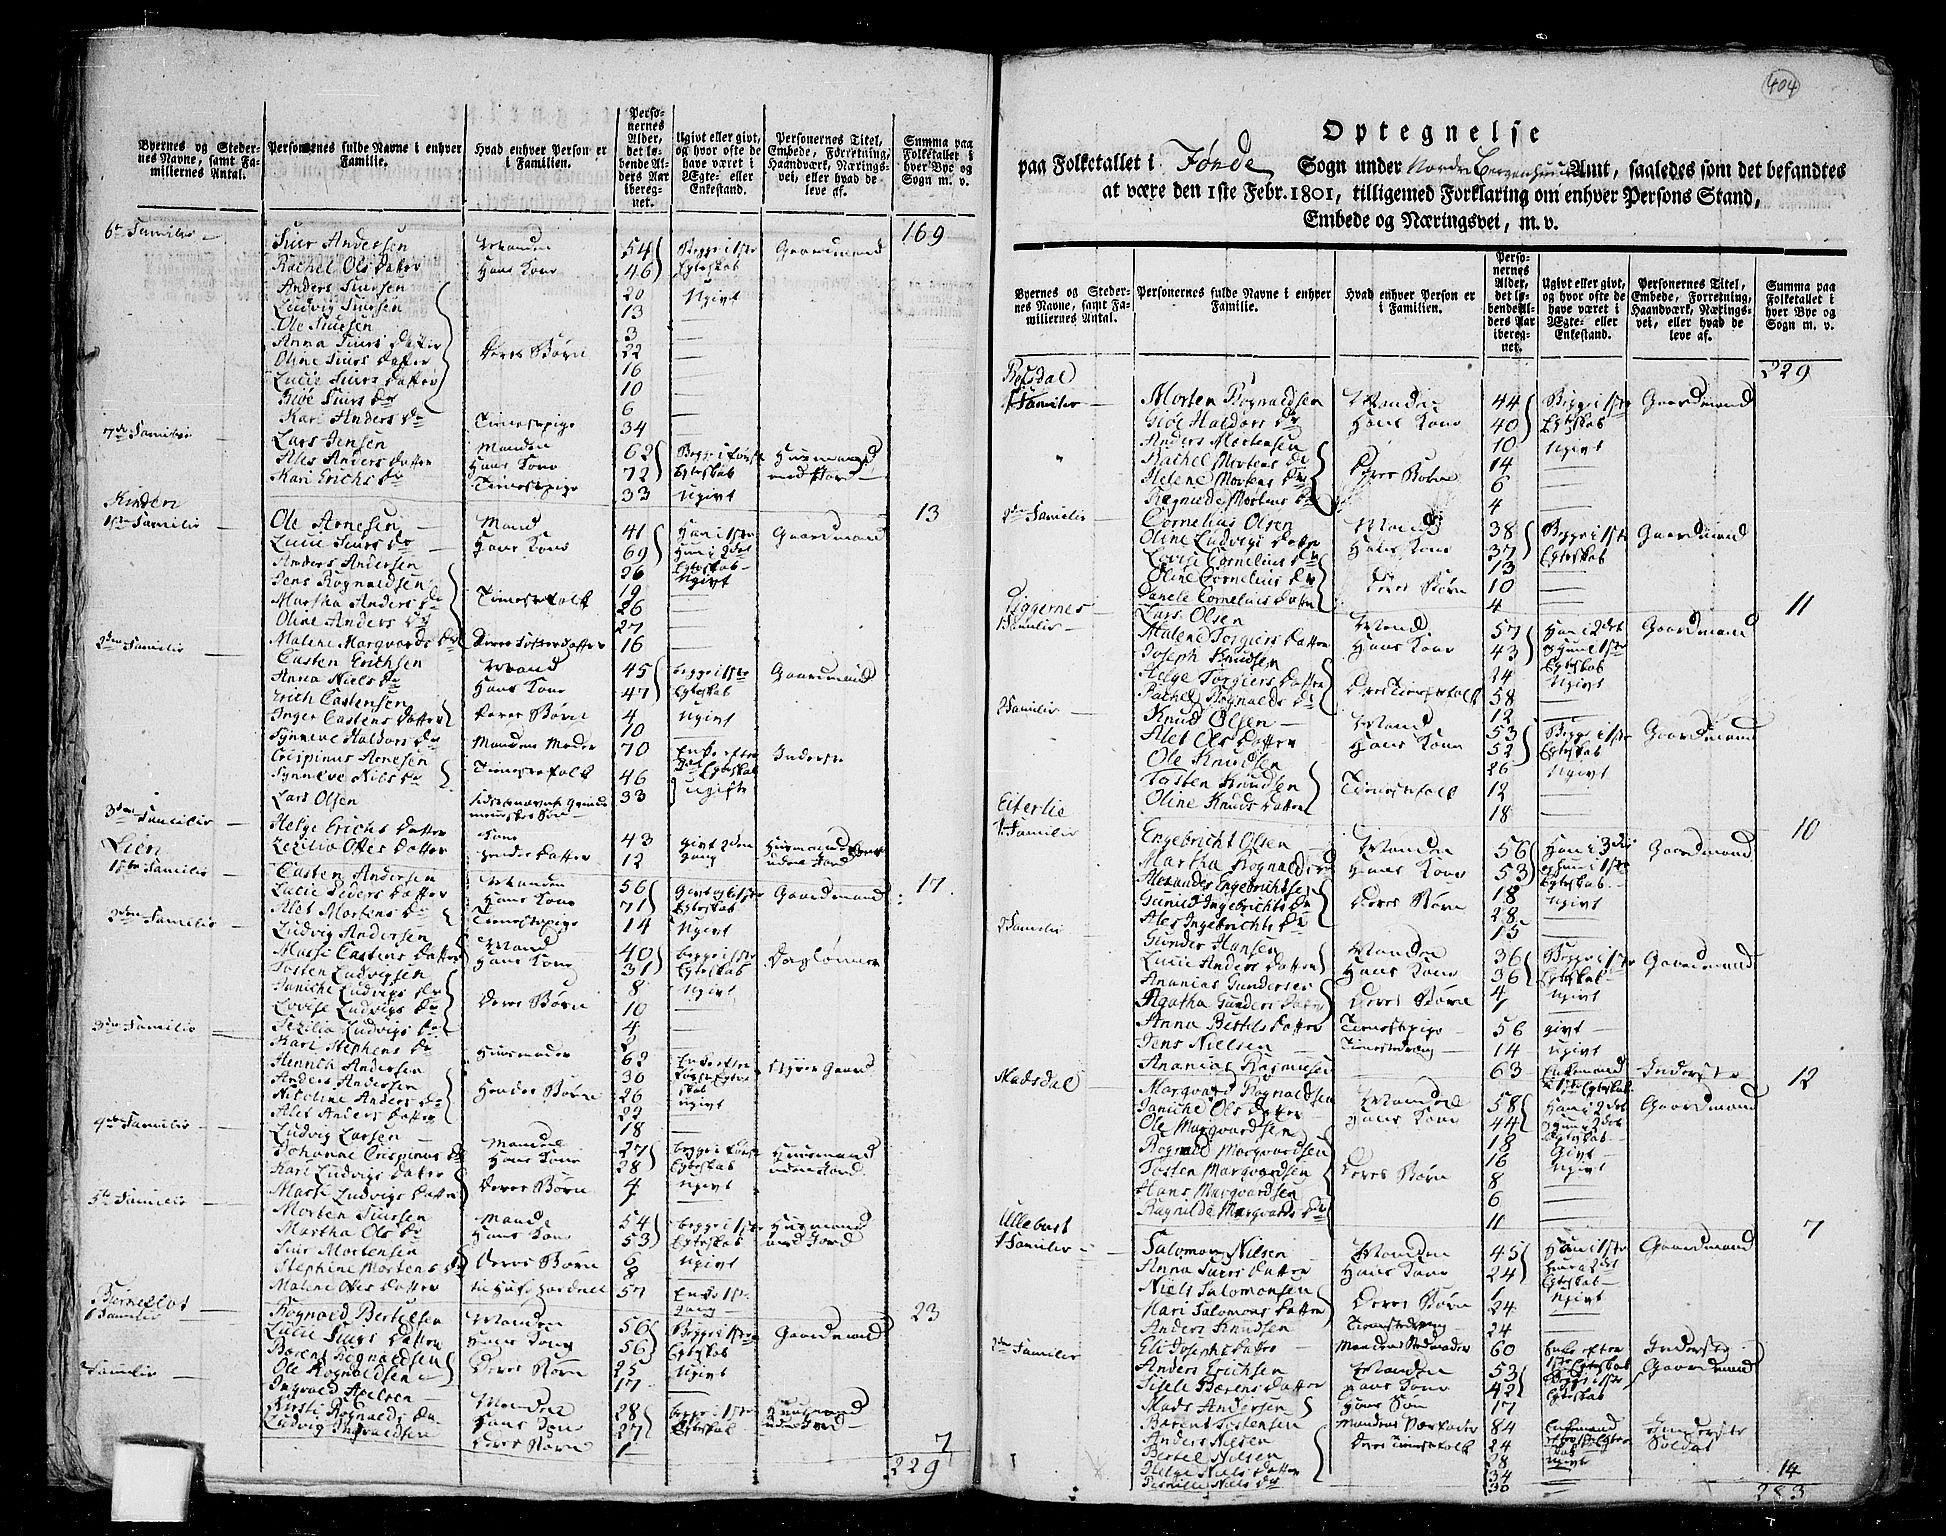 404
Byernes og Steder-
nes Navne, samt Fa-
miliernes Antal.
Personernes fulde Navne i enhver
Familie.
Hvad enhver Person er
i Familien.
Perso-
nernes
Alder,
det lø-
bende Al-
ders Aar
ibereg-
net.
Ugivt eller givt,
og hvor ofte de
have været i
Ægte- eller
Enkestand.
Personernes Titel,
Embede, Forretning,
Haandværk, Nærings-
vei, eller hvad de
leve af.
Summa paa
Folketallet i
hver Bye og
Sogn m. v.
169
6te Familie
Siur Andersen Manden 54 Begge i 1ste Gaardmand
Rachel Ols datter Hans Kone 46 Egteskab
Anders Siursen 20 Ugivt
Ludvig Siursen 13
Ole Siursen 3
Anna Siurs datter Deres Børn 22
Oline Siurs datter 16
Lucie Siurs datter 10
Giøe Siurs dr 6
Kari Anders dr Tienestepige 34
7de Familie
Lars Jensen Manden 62 Huusmand
Ales Anders datter Hans Kone 72 Egteskab med Jord
Kari Erichs dr Tienestepige 33 Ugivt
13
Kinden
1ste Familie
Ole Arnesen Mand 41 Han i 1ste Gaardmand
Lucie Siurs dr Hans Kone 69 Hun i 2det
Anders Andersen 26 Egteskab
Jens Rognaldsen 19 Ugivt
Martha Anders dr Tienestefolk 26
Oline Anders dr 27
Malene Marqvards dr Deres Søsterdatter 16
2den Familie
Casten Erichsen Mand 45 Begge i 1ste Gaardmand
Anna Niels dr Hans Kone 47 Egteskab
Erich Castensen Deres Børn 4 Ugivt
Inger Castens datter 10
Synneve Haldors dr Mandens Moder 70 Inderste
Crispinus Arnesen Tienestefolk 46
Synneve Nils dr 33 ugifte
Lars Olsen
3die Familie
Helge Erichs datter Kone 43 givt 2den Huusmand
Cezilia Oles datter hendes Datter 12 gang uden Jord
17
Lien
1ste Familie
Casten Andersen Manden 56 Gaardmand
Lucie Peders datter Hans Kone 71 Egteskab
Alet Mortens dr Tienestepige 14 Ugivt
2den Familie
Ludvig Andersen Mand 40 Begge i 1ste Daglønner
Massi Castens datter Hans Kone 31 Egteskab
Tosten Ludvigsen 8 Ugivt
Janiche Ludvigs dr Deres Børn 10
Lovise Ludvigs dr 4
Cezilia Ludvigs dr
3die Familie
Kari Stephens dr Huusmoder 62
Henrich Andersen 30
Anders Andersen Hendes Børn 26
Nicoline Anders dr 22 ugivt
Alet Anders datter 18
4de Familie
Ludvig Larsen Manden 27 Huusmand
Johanne Crispinus dr Hans Kone 28 Egteskab uden Jord
Kari Ludvigs datter Deres Børn 4 Ugivt
Massi Ludvigs datter 1
5te Familie
Morten Siursen Mand 54 Begge i 1ste Huusmand
Martha Ols dr Hans Kone 53 Egteskab med Jord
Siur Mortensen Deres Børn 6 Ugivt
Stephine Mortens dr 8
Malene Oles datter 57
23
Biørneflot
1 Familie
Rognald Bertelsen Manden 56 Begge i 1ste Gaardmand
Lucie Siurs datter Hans Kone 56 Egteskab
Berent Rognaldsen Deres Børn 25 Ugivt
Ole Rognaldsen 17
Familie
Ingvald Axelsen Manden 28 Begge i 1ste Huusmand
Kirsti Rognalds dr Hans Kone 27 Egteskab uden Jord
Ludvig Ingvaldsen Deres Børn 1
7
229
Optegnelse
paa Folketallet i Førde Sogn under Nordre Bergenhuus Amt, saaledes som det befandtes
at være den 1ste Febr. 1801, tilligemed Forklaring om enhver Persons Stand,
Embede og Næringsvei, m. v.
Byernes og Steder-
nes Navne, samt Fa-
miliernes Antal.
Personernes fulde Navne i enhver
Familie.
Hvad enhver Person er
i Familien.
Perso-
nernes
Alder,
det lø-
bende Al-
ders Aar
ibereg-
net.
Ugivt eller givt,
og hvor ofte de
have været i
Ægte- eller
Enkestand.
Personernes Titel,
Embede, Forretning,
Haandværk, Nærings-
vei, eller hvad de
leve af.
Summa paa
Folketallet i
hver Bye og
Sogn m. v.
229
1 Familie
Morten Rognaldsen Manden 44 Begge i 1ste Gaardmand
Giøe Haldors dr Hans Kone 40 Egteskab
Anders Mortensen 10 Ugivt
Rachel Mortens dr Deres Børn 14
Helene Mortens dr 6
Ragnilde Mortens dr 4
2den Familie
Cornelius Olsen Mand 38 Begge i 1ste Gaardmand
Oline Ludvigs datter Hans Kone 37 Egteskab
Lovise Cornelius dr 13
Oline Cornelius dr Deres Børn 10
Danele Cornelius datter 4
11
1 Familie
Lars Olsen Mand 57 Han i 2det Gaardmand
Malene Torgiers datter Hans Kone 43 og Hun i 1ste
Joseph Knudsen 24 Egteskab
Helge Torgiers datter Deres Tienestefolk 58 Ugivt
Rachel Rognalds dr 12
2 Familie
Knud Olsen Mand 53 Begge i 1ste Gaardmand
Alet Ols datter Hans Kone 52 Egteskab
Ole Knudsen 26 Ugivt
Tosten Knudsen Tienestefolk 12
Oline Knuds datter 18
10
Eiterlie
1 Familie
Engebricht Olsen Manden 56 Han i 3die Gaardmand
Martha Rognalds dr Hans Kone 53 og Hun i 1ste
Alexander Engebrichtsen 18 Egteskab
Gunild Ingebrichts dr Deres Børn 28 Ugivt
Ales Ingebrichts dr 15
2 Familie
Gunder Hansen Manden 36 Begge i 1ste Gaardmand
Lucie Anders datter Hans Kone 36 Egteskab
Ananias Gundersen Deres Børn 4 Ugivt
Agatha Gunders datter 1
Anna Bertels datter Tienestepige 56 givt
Jens Nielsen Tienestedreng 14 Ugivt
Ananias Rasmusen 63 Enkemand Inderste
12
Madsdal
Marqvard Rognaldsen Manden 58 Han i 2det Gaardmand
Janiche Ols datter Hans Kone 44
Ole Marqvardsen 18 Egteskab
Rognald Marqvardsen 16
Tosten Marqvardsen Deres Børn 8 Ugivt
Hans Marqvardsen 6
Ragnilde Marqvards dr 11
7
Ullebust
1 Familie
Salomon Nilsen Manden 45 Han i 1ste Gaardmand
Anna Siurs datter Hans Kone 24 Hun i 2det
Niels Salomonsen 1 Egteskab
Mari Salomons datter Deres Børn 24 Ugivt
Anders Knudsen Tienestedreng 24
Eli Josephs datter 60 Inderste
2den Familie
Anders Erichsen Manden 53 Begge i 1ste Gaardmand
Sisele Berens datter Hans Kone 42 Egteskab
Mads Andersen Hans Søn 17
Berent Tostensen 84 Enkemand Inderste
Anders Nilsen Deres Tienestefolk 24 Soldat
Bertel Nilsen 28 Ugivt
Helge Niels datter 34
Pernille Niels dr 30
14
283